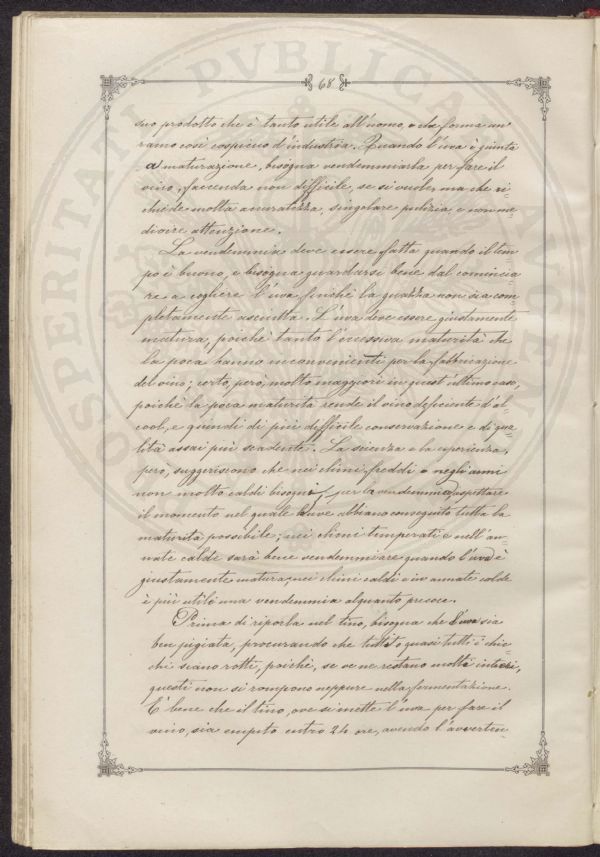 68
suo prodotto che è tanto utile all'uomo, e che forma un
ramo così cospicuo d'industria. Quando l'uva è giunta
a maturazione, bisogna vendemmiarla per fare il
vino, faccenda non difficile, se si vuole, ma che ri
chiede molta accuratezza, singolare pulizia e non me-
diocre attenzione.
La vendemmia deve essere fatta quando il tem
po è buono, e bisogna guardarsi bene dal comincia
re a cogliere l'uva finchè la guazza non sia com
pletamente asciutta. L'uva deve essere giustamente
matura, poichè tanto l'eccessiva maturità che
la poca hanno inconvenienti per la fabbricazione
del vino; certo, però, molto maggiori in quest'ultimo caso,
poichè la poca maturità rende il vino deficiente d'al-
cool, e quindi di più difficile conservazione e di qua-
lità assai più scadente. La scienza e la esperienza,
però, suggeriscono che nei climi freddi o negli anni
non molto caldi bisogni, per la vendemmia, aspettare
il momento nel quale l'uve abbiano conseguito tutta la
maturità possibile; nei climi temperati e nell'an-
nate calde sarà bene vendemmiare quando l'uva è
giustamente matura; nei climi caldi e in annate calde
è più utile una vendemmia alquanto precoce.
Prima di riporla nel tino, bisogna che l'uva sia
ben pigiata, procurando che tutti o quasi tutti i chic-
chi siano rotti, poichè, se ve ne restano molti interi,
questi non si rompono neppure nella fermentazione.
E' bene che il tino, ove si mette l'uva per fare il
vino, sia empito entro 24 ore, avendo l'avverten-
PROSPERITATI PVBLICAE AVGENDAE